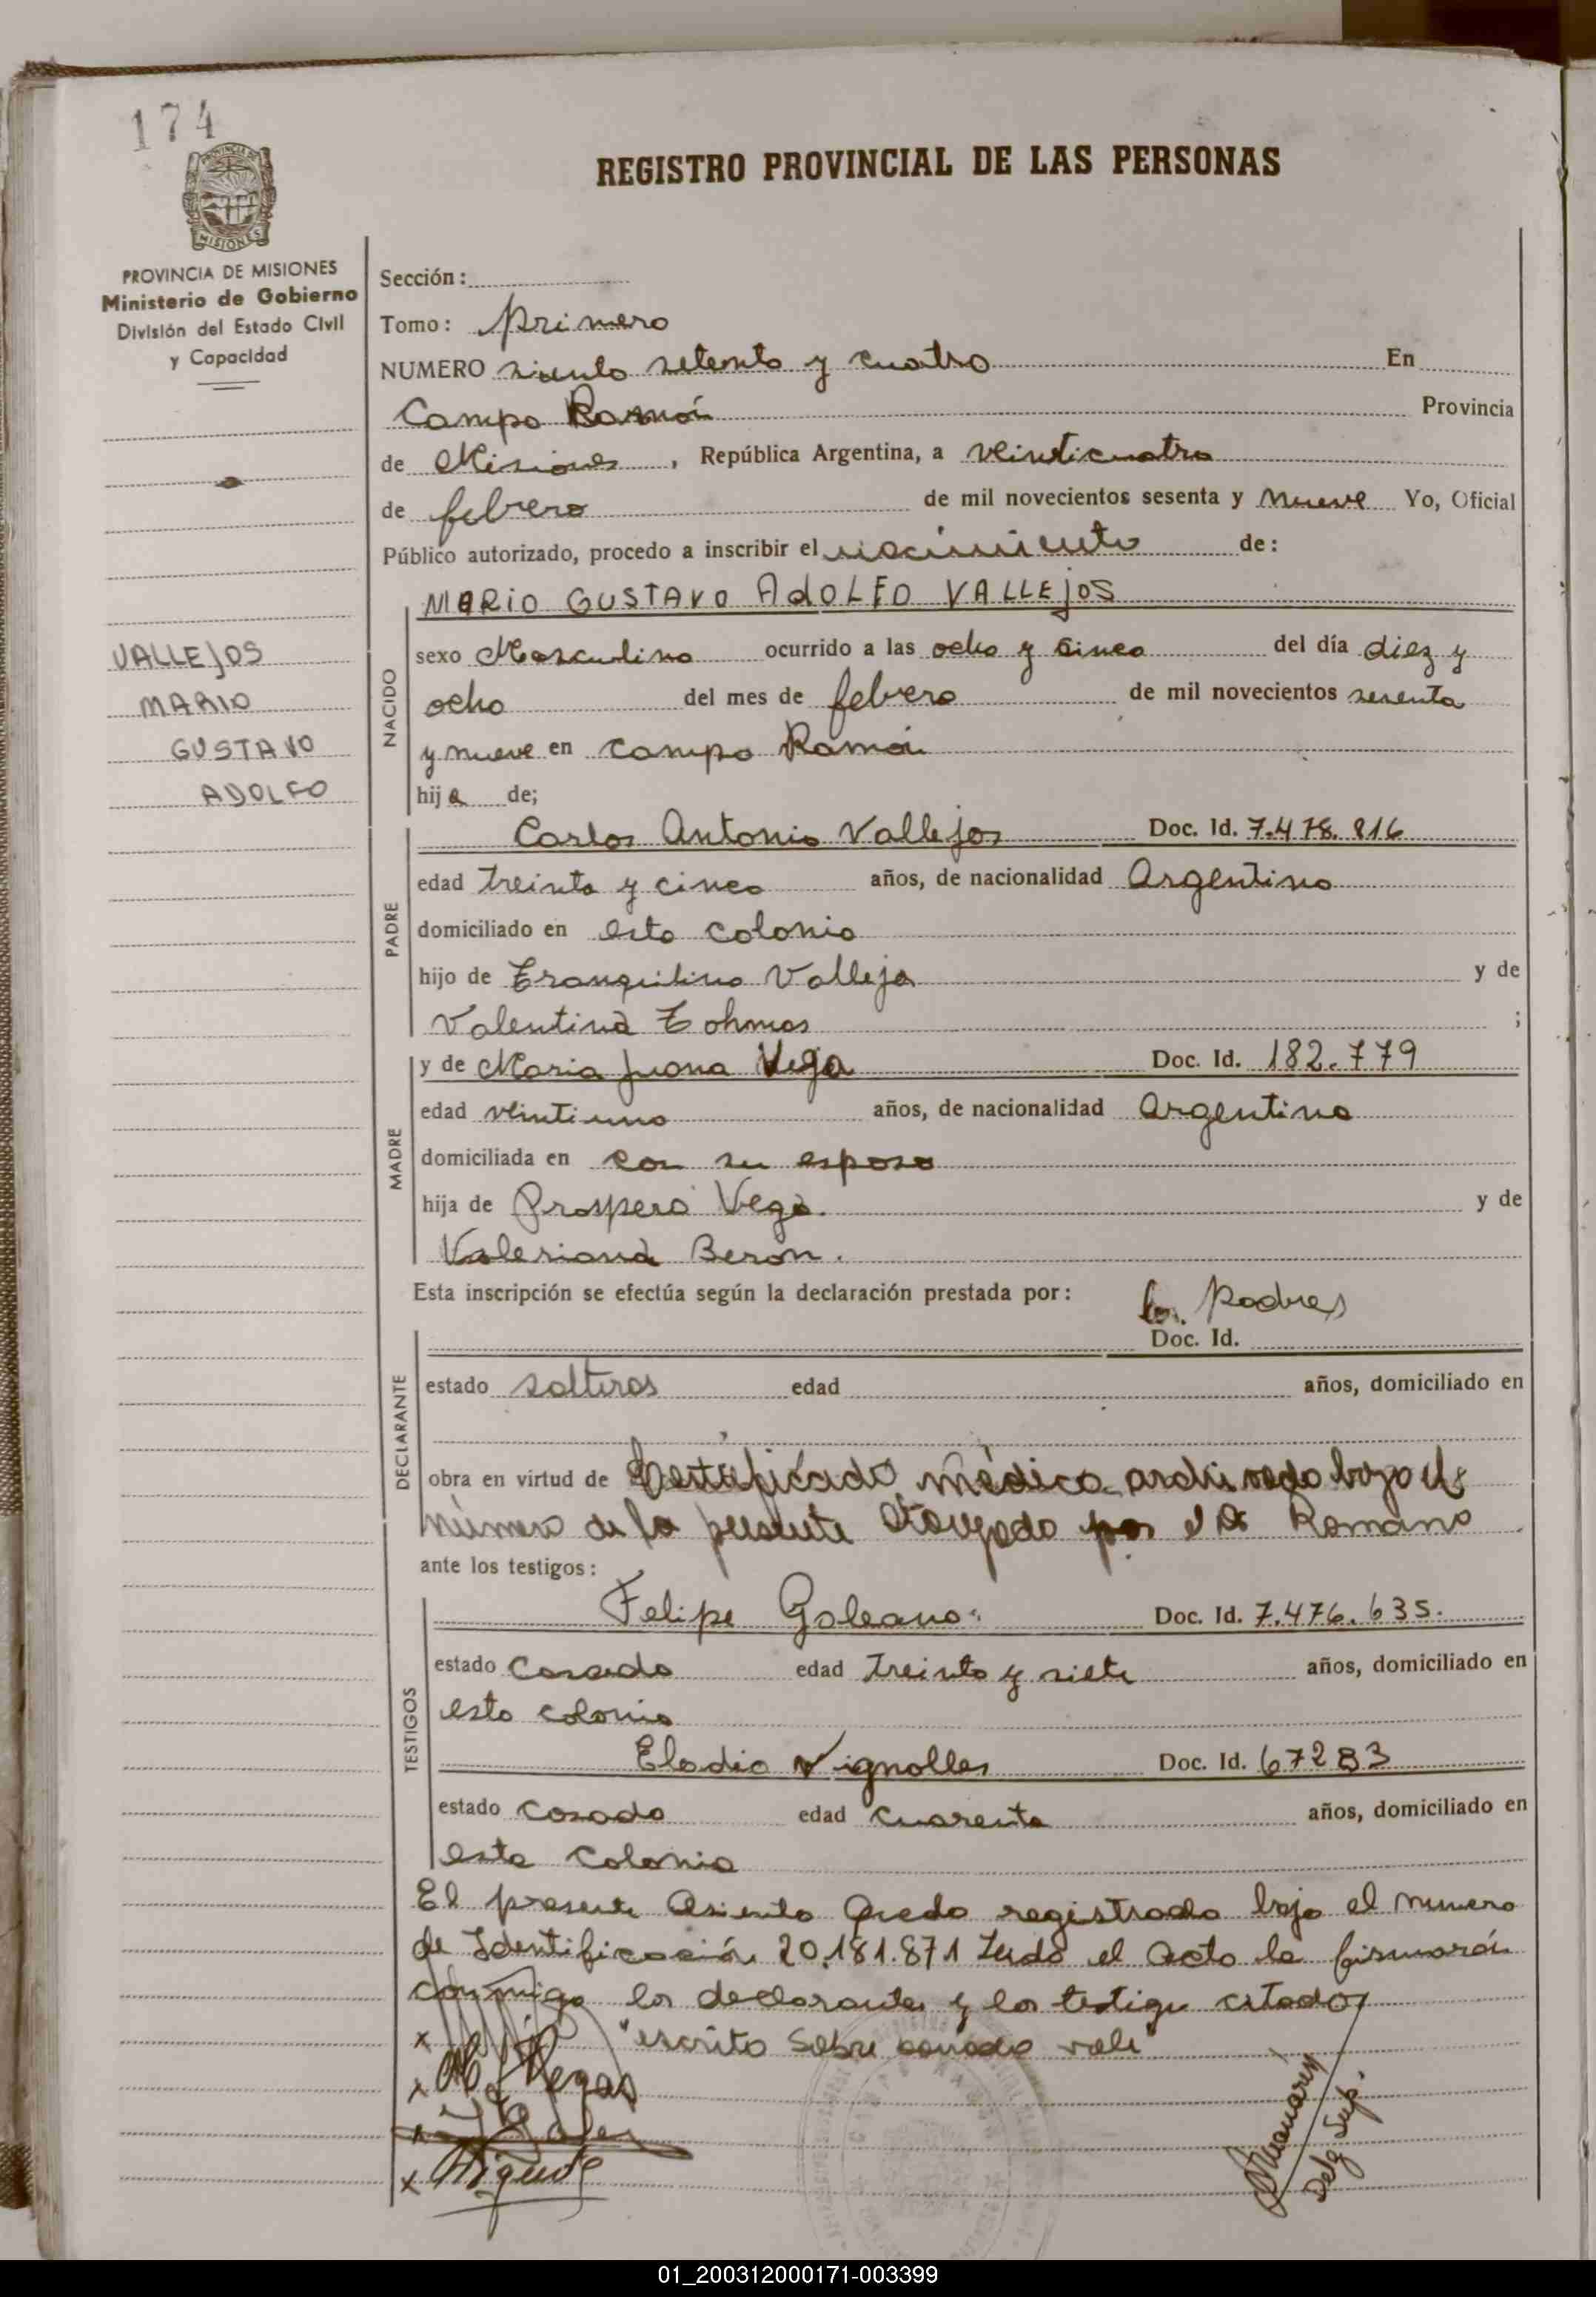 174
REGISTRO PROVINCIAL DE LAS PERSONAS
PROVINCIA DE MISIONES
Ministerio de Gobierno
División del Estado Civil
y Capacidad
Sección:
Tomo: primero
NUMERO siento setenta y cuatro En
Campo Ramón Provincia
de Misiones, República Argentina, a veinticuatro
de febrero de mil novecientos sesenta y nueve Yo, Oficial
Público autorizado, procedo a inscribir el nacimiento de:
MARIO GUSTAVO ADOLFO VALLEJOS
VALLEJOS
MARIO
GUSTAVO
ADOLFO
NACIDO
sexo Masculino ocurrido a las ocho y cinco del día diez y
ocho del mes de febrero de mil novecientos sesenta
y nueve en campo Ramón
hij o de;
PADRE
Carlos Antonio Vallejos Doc. Id. 7.478.816
edad treinta y cinco años, de nacionalidad Argentino
domiciliado en esta colonia
hijo de Tranquilino Vallejos y de
Valentina ;
MADRE
y de Maria Juana Vega Doc. Id. 182.779
edad veintiuno años, de nacionalidad argentina
domiciliada en con su esposo
hija de Prospero Vega. y de
Valeriana Beron.
Esta inscripción se efectúa según la declaración prestada por: los Padres
Doc. Id.
DECLARANTE
estado solteros edad años, domiciliado en
obra en virtud de Certificado médico archivado bajo el
número de la presente otorgado por el Dr Romano
ante los testigos:
TESTIGOS
Felipe Galeano. Doc. Id. 7.476.635.
estado Casado edad treinta y siete años, domiciliado en
esta colonia
Eladio Vignolles Doc. Id. 67283
estado Casado edad cuarenta años, domiciliado en
esta colonia
El presente asiento queda registrado bajo el numero
de Identificación 20.181.871 Leido el acta la firmarán
conmigo los declarantes y los testigos citados
x "escrito sobre borrado vale"
x
x
x
Delg Sup.
01_200312000171-003399